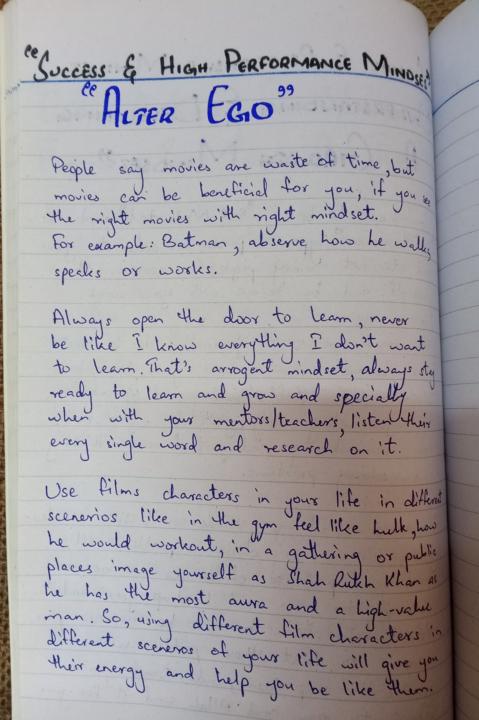 "Success & High Performance Mindset"
"Alter Ego"
People say movies are waste of time, but
movies can be beneficial for you, if you see
the right movies with right mindset.
For example: Batman, observe how he walks,
speaks or works.
Always open the door to learn, never
be like I know everything I don't want
to learn. That's arrogent mindset, always stay
ready to learn and grow and specially
when with your mentors/teachers, listen their
every single word and research on it.
Use films characters in your life in different
scenerios like in the gym feel like hulk, how
he would workout, in a gathering or public
places image yourself as Shah Rukh Khan as
he has the most aura and a high-value
man. So, using different film characters in
different sceneros of your life will give you
their energy and help you be like them.